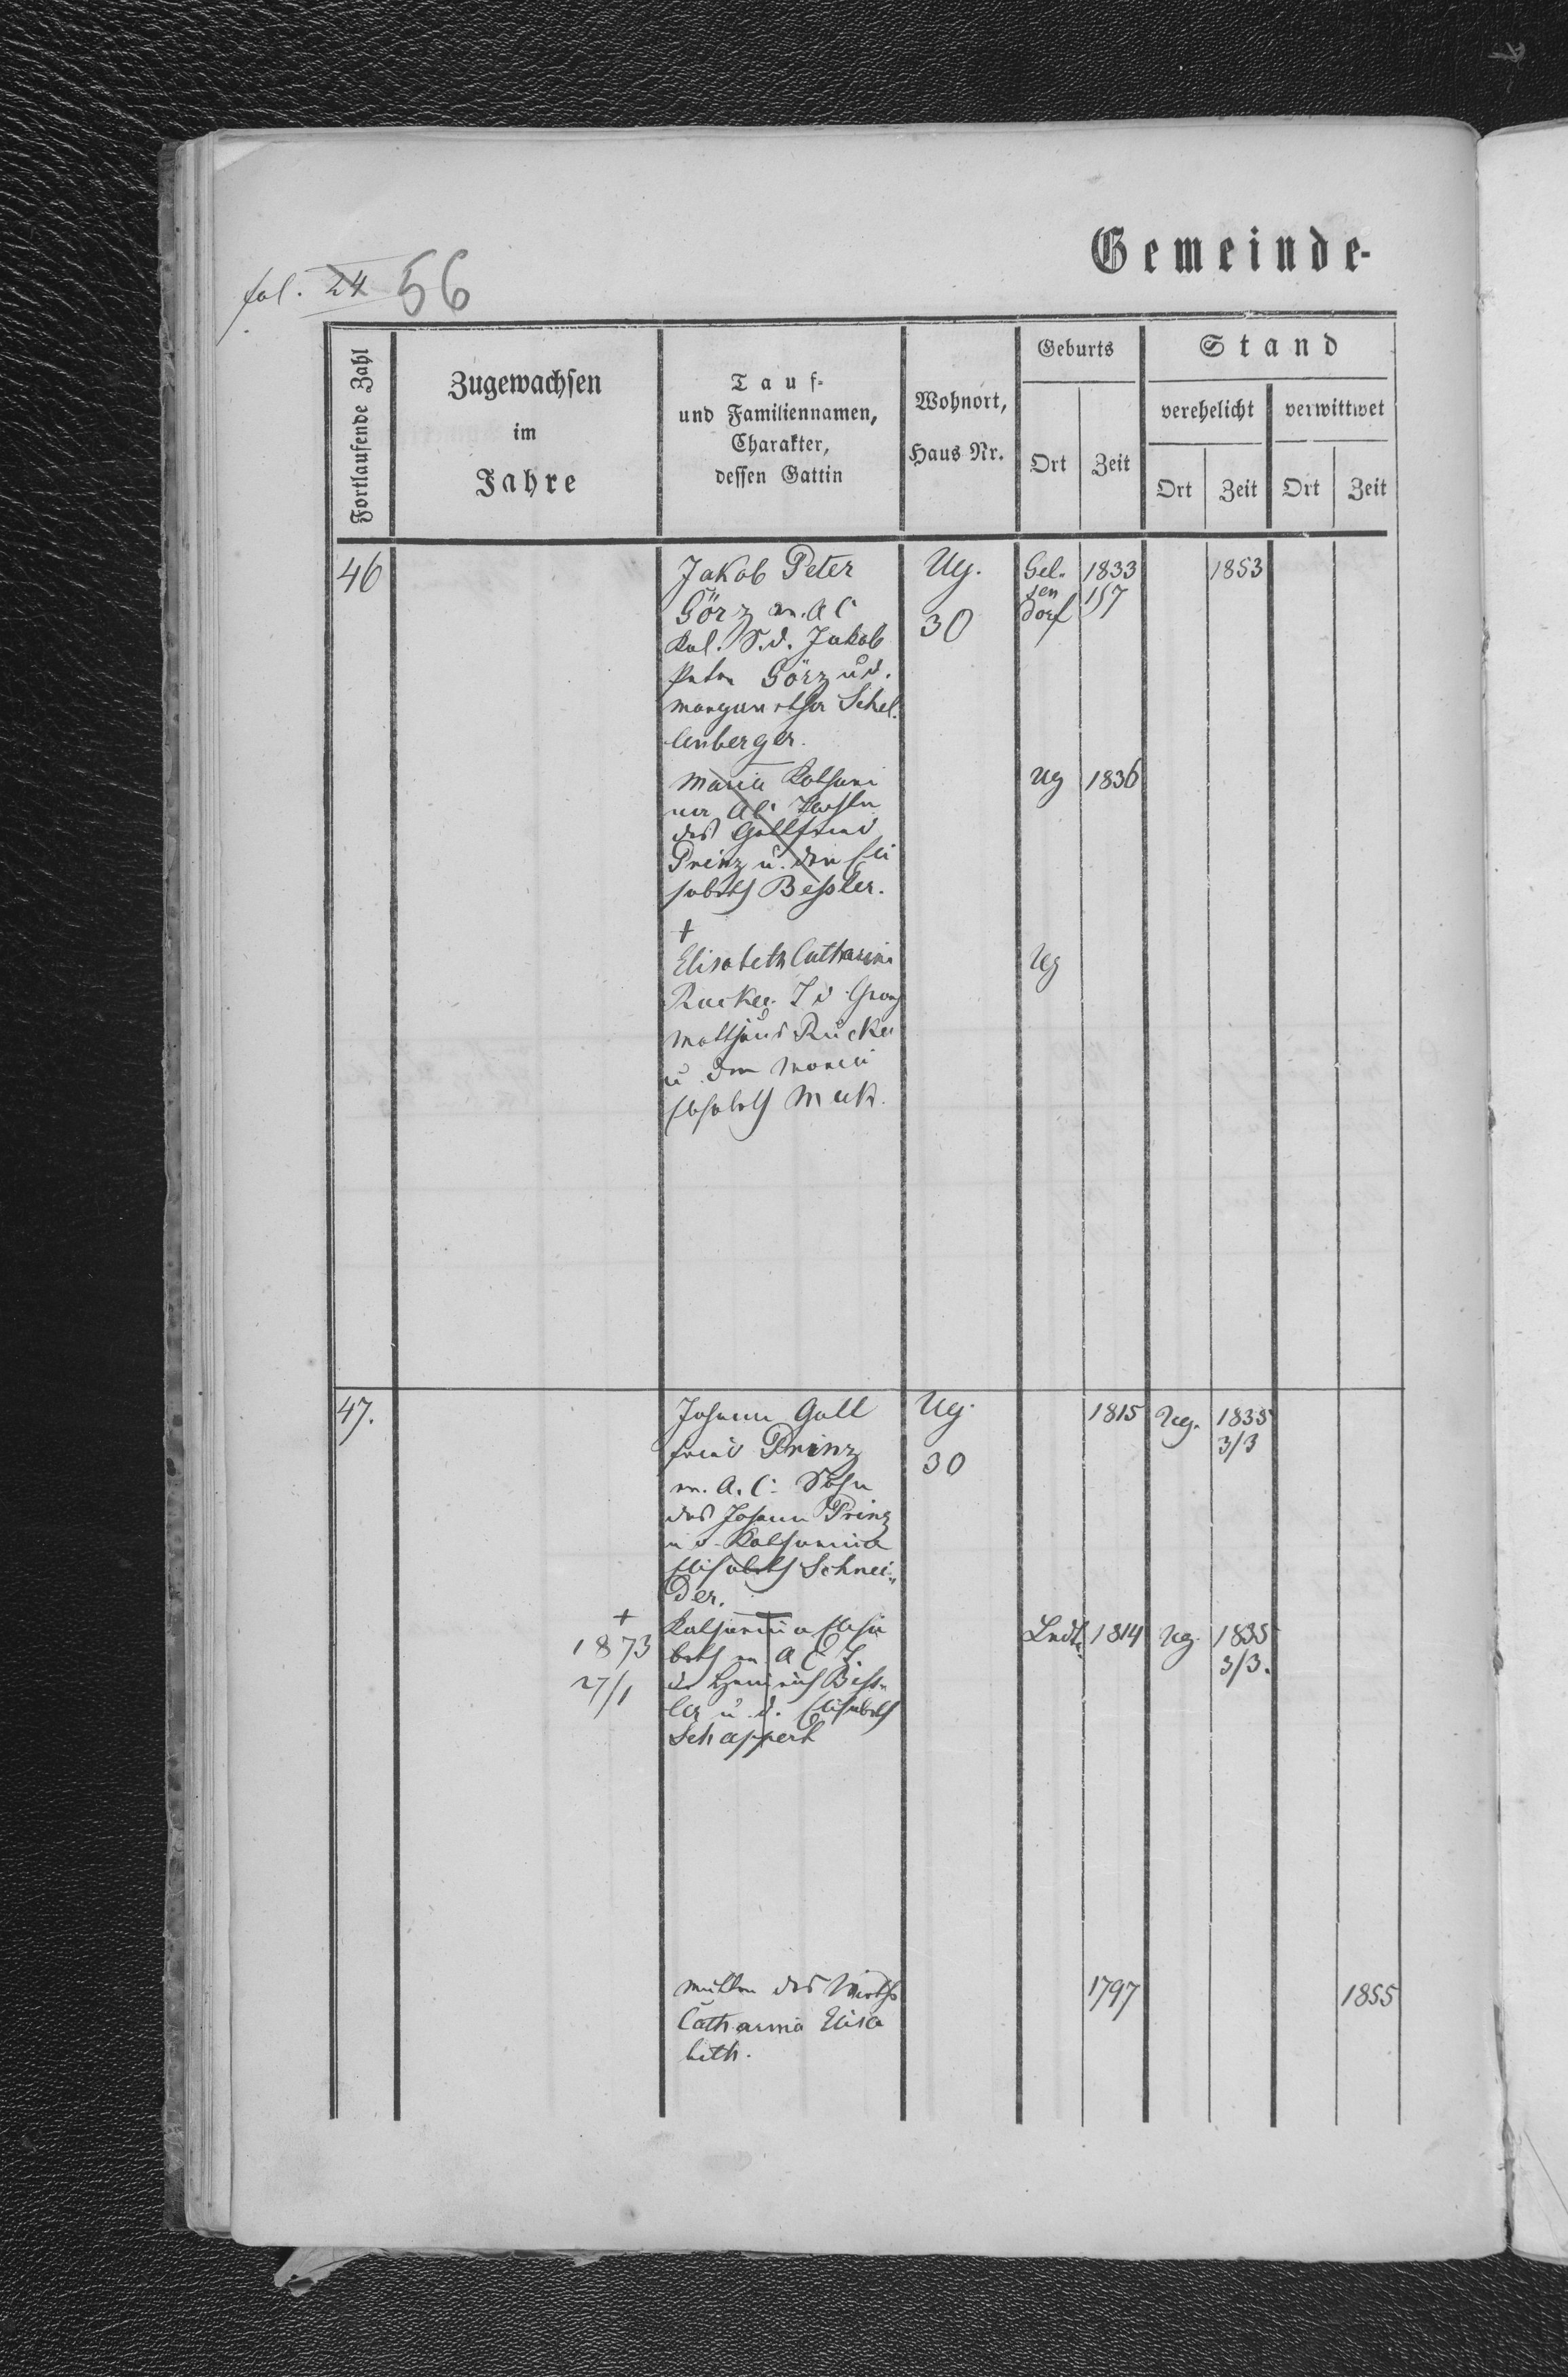 Gemeinde-
fol. 24 56
Fortlaufende Zahl
Zugewachsen
im
Jahre
Tauf-
und Familiennamen,
Charakter,
dessen Gattin
Wohnort,
Haus Nr.
Geburts
Ort
Zeit
Stand
verehelicht
Ort
Zeit
verwittwet
Ort
Zeit
46
Jakob Peter
Görz m. A C
Kol. S. d. Jakob
Peter Görz u d.
Margaretha Schel-
lenberger.
Ug.
30
Gel-
sen
dorf
1833
15/7
1853
Maria Kathari
na AC Tochter
des Gottfried
Prinz u. der Eli
sabeth Bessler.
Ug
1836
+
Elisabeth Catharina
Rucker T d Georg
Matthäus Rucker
u der Maria
Elisabeth Muk.
Ug
47.
Johann Gott
fried Prinz
m. A. C. Sohn
des Johann Prinz
u d. Katharina
Elisabeth Schnei-
der.
Ug.
30
1815
Ug.
1835
3/3
+
1873
27/1
Katharina Elisa
beth m A C T.
d. Heinrich Bess-
ler u. d. Elisabeth
Schappert
1814
Ug.
1835
3/3.
Mutter des Wirths
Catharina Elisa
beth.
1797
1855